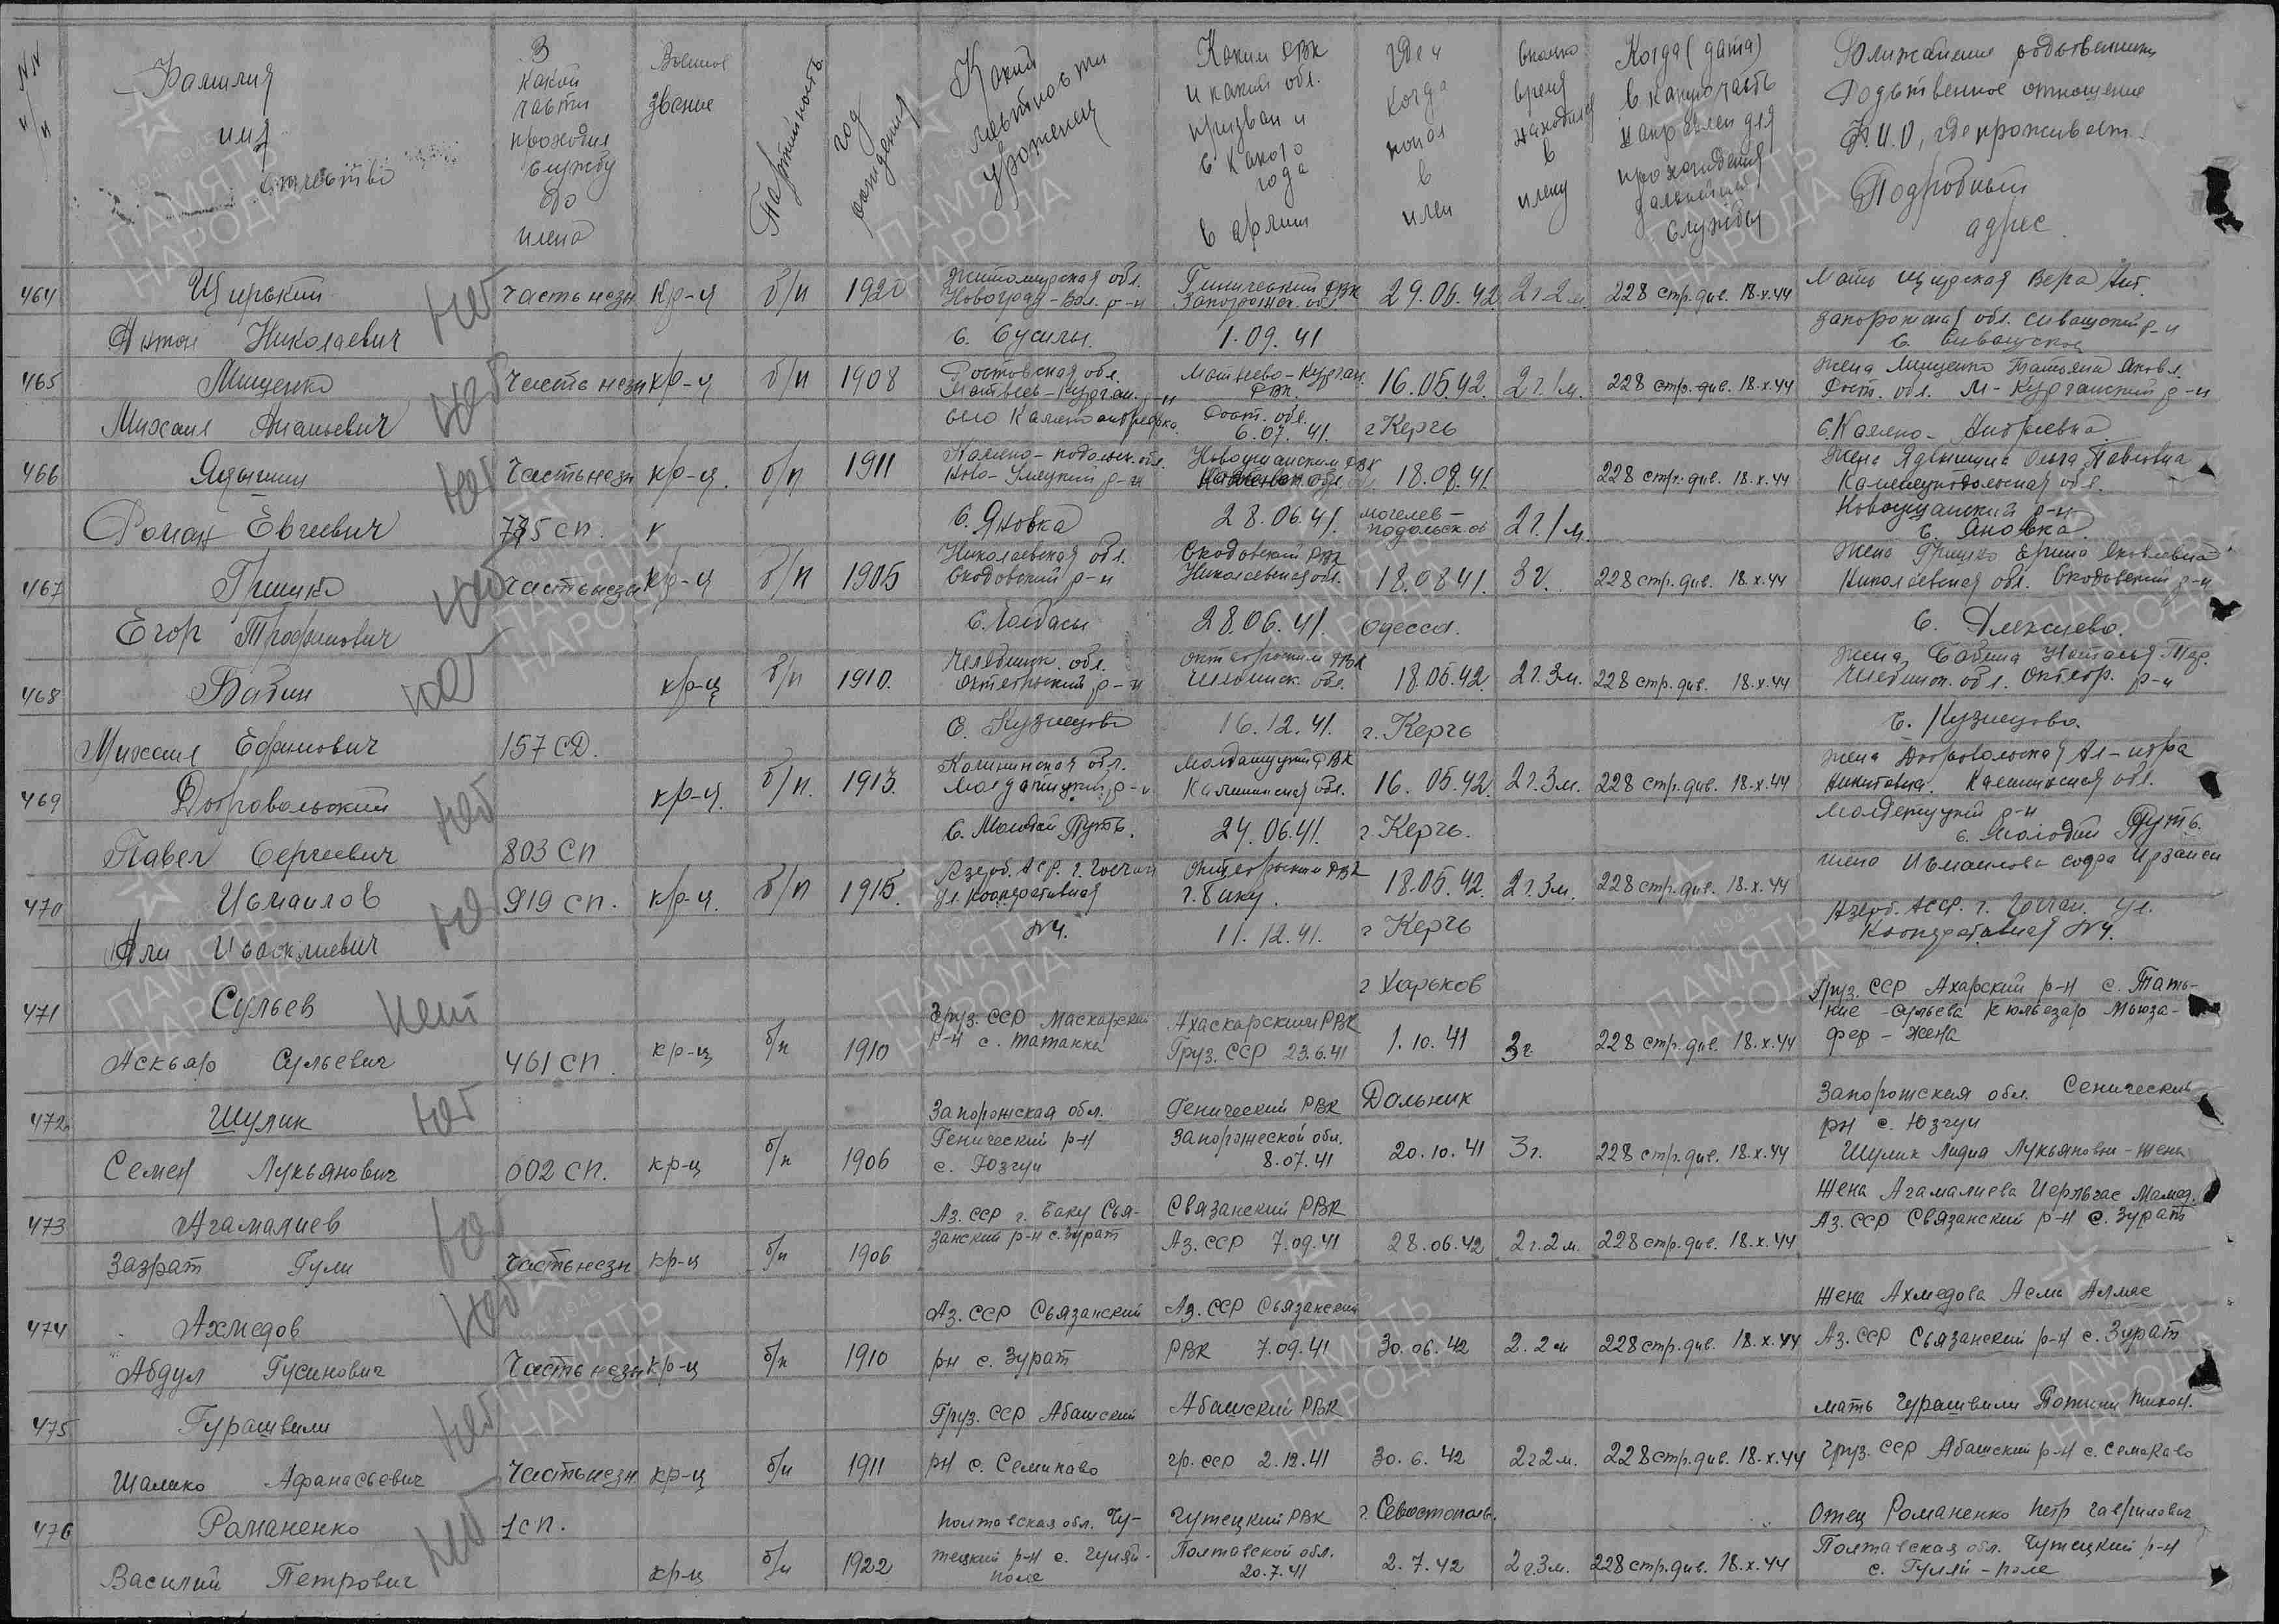 NN п/п
Фамилия имя отчество
В какой части проходил службу до плена
Военное звание
Партийность
год рождения
Какой местности уроженец
Каким РВК и какой обл. призван и с какого года в армии
Где и когда попал в плен
сколько время находился в плену
Когда (дата) в какую часть направлен для прохождения дальнейшей службы
Ближайшие родственники Родственное отношение Ф.И.О, где проживает.
Подробный адрес
464 Щирский Часть незн кр-ц б/п 1920 Житомирская обл. Новоград-Вол. р-н Запорожск. обл. 29.06.42 2г.2м. 228 стр. див. 18.х.44 Мать Щирская Вера Ант.
Антон Николаевич нет с. Сусилы. 1.09.41 Запорожская обл. Сивашский р-н с. Сивашское
465 Мищенко Часть незн кр-ц б/п 1908 Ростовская обл. Матвеев-Курган. р-н Матвеево-Курган. РВК 16.05.42. 2г.1м. 228 стр. див. 18.х.44 жена Мищенко Татьяна Яковл. Рост. обл. М-Курганский р-н
Михаил нет село Рост. обл. 6.07.41. г Керчь с.
466 Часть незн кр-ц. б/п 1911 Каменец-подольск. обл. Ново-Ушецкий р-н Новоушанским РВК 18.08.41. 228 стр. див. 18.х.44 Жена Ольга Павловна Каменецподольская обл.
Роман Евгеевич нет 775 сп. с. Яновка 28.06.41. могилев-подольск. об 2г.1м. Новоушанский р-н с. Яновка
467 Гришко Часть незн кр-ц б/п 1905 Николаевская обл. Скодовский р-н Скодовский РВК Николаевская обл. 18.08.41. 3г. 228 стр. див. 18.х.44 Жена Гришко Яковлевна Николаевская обл. Скодовский р-н
Егор Трофимович нет с. 28.06.41. Одесса. с. Алексиево.
468 Бабин кр-ц б/п 1910. Челябинск. обл. Октябрьский р-н Октябрьским РВК Челябинск. обл. 18.05.42. 2г.3м. 228 стр. див. 18.х.44 Жена, Бабина Наталья Челябинск. обл. Октябр. р-н
Михаил Ефимович нет 157 СД. с. Кузнецово 16.12.41. г. Керчь с. Кузнецово.
469 Добровольский кр-ц. б/п. 1913. Калининская обл. р-н РВК Калининская обл. 16.05.42. 2г.3м. 228 стр. див. 18.х.44 жена Добровольская Ал-ндра Никитовна. Калининская обл.
Павел Сергеевич нет 803 сп с. Молодой Путь. 24.06.41. г. Керчь. р-н с. Молодой Путь.
470 Исмаилов 919 сп. кр-ц. б/п 1915. Азерб. ССР. г. ул. Кооперативная Октябрьским РВК г. Баку. 18.05.42. 2г.3м. 228 стр. див. 18.х.44 жена Исмаилова
Али N4. 11.12.41. г Керчь Азерб. ССР. г. ул. Кооперативная N4.
471 Сульев нет г Харьков Груз. ССР Ахарский р-н с. Тать-
Аскьар Сульевич 461 сп. кр-ц б/п 1910 Груз. ССР Маскарский р-н с. Татанка Ахаскарский РВК Груз. ССР 23.6.41 1.10.41 3г. 228 стр. див. 18.х.44 ние - Сульева Кюльезар Мьюза-фер - жена
472 Шулик нет Запорожская обл. Генический РВК Дольник Запорожская обл. Сенический рн с. Юзгуи
Семен Лукьянович 602 сп. кр-ц б/п 1906 Генический р-н с. Юзгуи Запорожеской обл. 8.07.41 20.10.41 3г. 228 стр. див. 18.х.44 Шулик Лидия Лукьяновн - жена
473 Агамалиев Аз. ССР г. Баку Свя-занский р-н с. Зурат Свзанский РВК Жена Агамалиева Мамед.
Зазрат Гули часть незн кр-ц б/п 1906 Аз. ССР 7.09.41 28.06.42 2г.2м. 228 стр. див. 18.х.44 Аз. ССР Свзанский р-н с. Зурат
474 Ахмедов нет Аз. ССР Сьязанский Аз. ССР Сьязанский Жена Ахмедова Асмь Алмас
Абдул Гусинович Часть незн кр-ц б/п 1910 рн с. Зурат РВК 7.09.41 30.06.42 2.2м 228 стр. див. 18.х.44 Аз. ССР Сьязанский р-н с. Зурат
475 Гурашвили нет Груз. ССР Абашский Абашский РВК мать Гурашвили
Шалико Афанасьевич Часть незн кр-ц б/п 1911 рн с. Семиково гр. сср 2.12.41 30.6.42 2г2м. 228 стр. див. 18.х.44 груз. ССР Абашский р-н с. Семиково
476 Романенко нет 1 сп. Полтавская обл. Чу-тецкий р-н с. Гуляй-поле Чутецкий РВК г. Севостополь. Отец Романенко Петр Гаврилович
Василий Петрович кр-ц б/п 1922 Полтавской обл. 20.7.41 2.7.42 2г3м. 228 стр. див. 18.х.44 Полтавская обл. Чутецкий р-н с. Гуляй-поле
ПАМЯТЬ НАРОДА